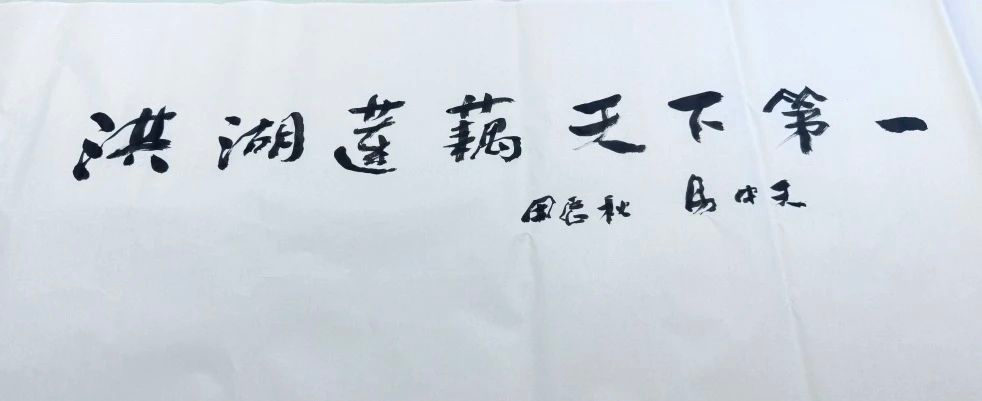 洪湖莲藕天下第一
秋